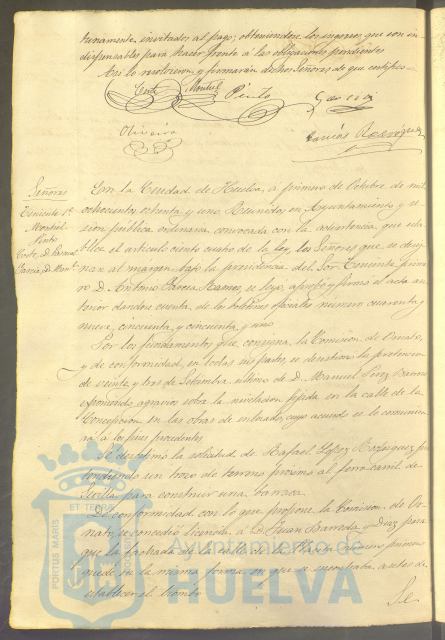 tunamente invitados al pago, obteniendose los ingresos que son in-
dispensables para hacer frente á las obligaciones pendientes
Asi lo resolvieron y firmaran dichos Señores, de que certifico=
Montiel Pinto Garcia
Oliveira Rodriguez
Señores
Teniente 1º
Montiel
Pinto
Garcia, D. Manl.
En la Ciudad de Huelva, á primero de Octubre de mil
ochocientos ochenta y uno Reunidos en Ayuntamiento y se
sion publica ordinaria convocada con la advertencia que esta
blece el articulo ciento cuatro de la ley, los Señores que se desig
nan al margen, bajo la presidencia del Sor. Teniente prime
ro D. Antonio Garcia Ramos se leyo, aprobó y firmó el acta an
terior dandose cuenta de los boletines oficiales número cuarenta y
nueve, cincuenta y cincuenta y uno
Por los fundamentos que consigna la Comision de Ornato,
y de conformidad en todas sus partes, se desestimo la pretencion
de veinte y tres de Setiembre ultimo de D. Manuel Perez Barrera
esponiendo agravios sobre la nivelacion fijada en la calle de la
Concepcion en las obras de enlosado, cuyo acuerdo se le comunica
rá á los fines procedentes
Se desestimo la solicitud de Rafael Lopez pre
tendiendo un trozo de terreno proximo al ferro-carril de
Sevilla para construir una barraca
De conformidad con lo que propone la Comision de Or
nato se concedió licencia á D. Juan Barreda y Diaz para
que la fachada de la calle de número primero
quede en la misma forma en que se encontraba antes de
establecer el
Se
PORTUS MARIS ET TERRE CUSTODIA
Ayuntamiento de
HUELVA